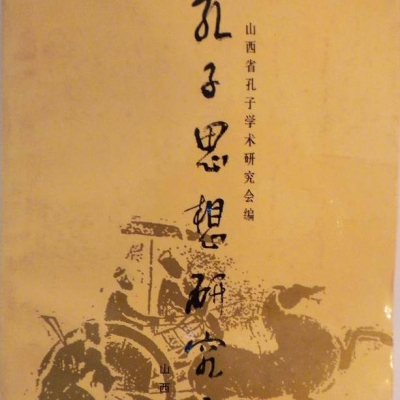 山西省孔子学术研究会编
孔子思想研究
山西